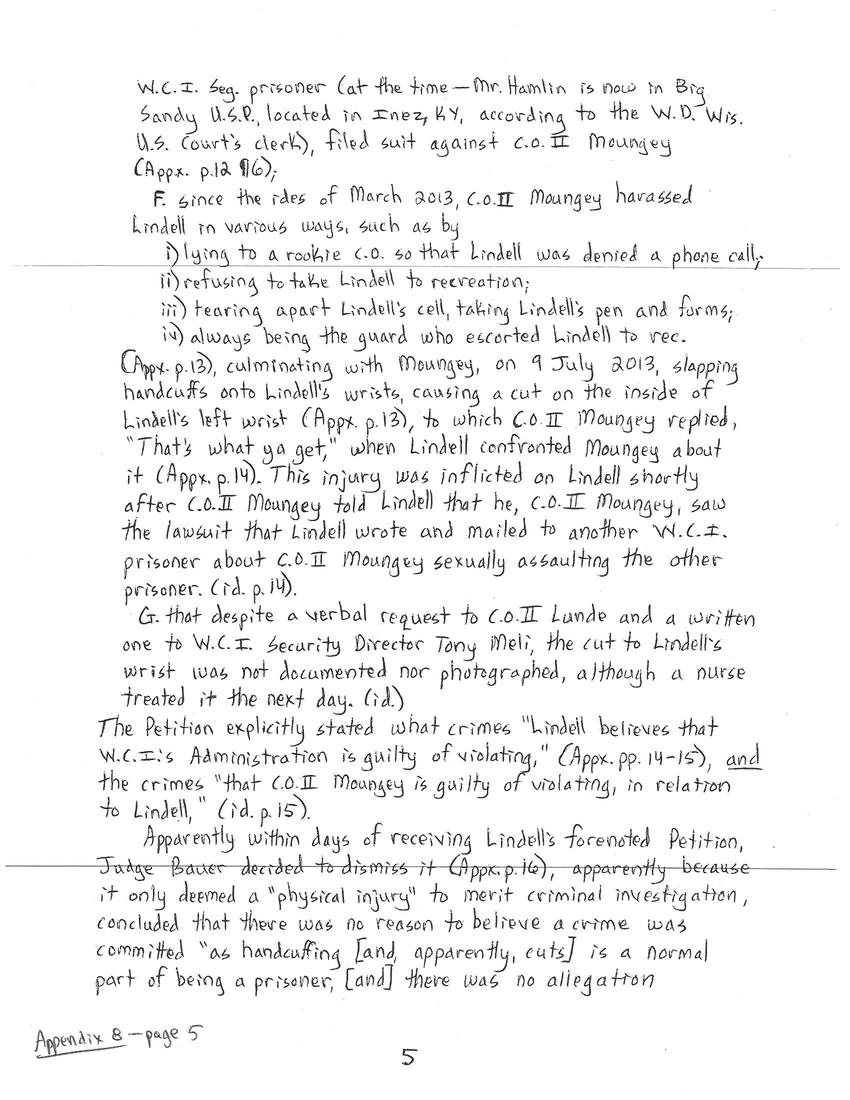 W.C.I. Seg. prisoner (at the time — Mr. Hamlin is now in Big
Sandy U.S.P., located in Inez, KY, according to the W.D. Wis.
U.S. Court's clerk), filed suit against C.O. II Moungey
(Appx. p.12 ¶16);
F. since the ides of March 2013, C.O. II Moungey harassed
Lindell in various ways, such as by
i) lying to a rookie C.O. so that Lindell was denied a phone call;
ii) refusing to take Lindell to recreation;
iii) tearing apart Lindell's cell, taking Lindell's pen and forms;
iv) always being the guard who escorted Lindell to rec.
(Appx. p.13), culminating with Moungey, on 9 July 2013, slapping
handcuffs onto Lindell's wrists, causing a cut on the inside of
Lindell's left wrist (Appx. p.13), to which C.O. II Moungey replied,
"That's what ya get," when Lindell confronted Moungey about
it (Appx. p.14). This injury was inflicted on Lindell shortly
after C.O. II Moungey told Lindell that he, C.O. II Moungey, saw
the lawsuit that Lindell wrote and mailed to another W.C.I.
prisoner about C.O. II Moungey sexually assaulting the other
prisoner. (id. p.14).
G. that despite a verbal request to C.O. II Lunde and a written
one to W.C.I. Security Director Tony Meli, the cut to Lindell's
wrist was not documented nor photographed, although a nurse
treated it the next day. (id.)
The Petition explicitly stated what crimes "Lindell believes that
W.C.I.'s Administration is guilty of violating," (Appx. pp. 14-15), and
the crimes "that C.O. II Moungey is guilty of violating, in relation
to Lindell," (id. p.15).
Apparently within days of receiving Lindell's forenoted Petition,
Judge Bauer decided to dismiss it (Appx. p.16), apparently because
it only deemed a "physical injury" to merit criminal investigation,
concluded that there was no reason to believe a crime was
committed "as handcuffing [and, apparently, cuts] is a normal
part of being a prisoner, [and] there was no allegation
Appendix 8 — page 5
5